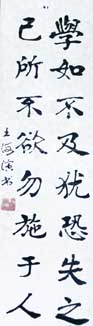 學如不及犹恐失之
己所不欲勿施于人
王海滨书